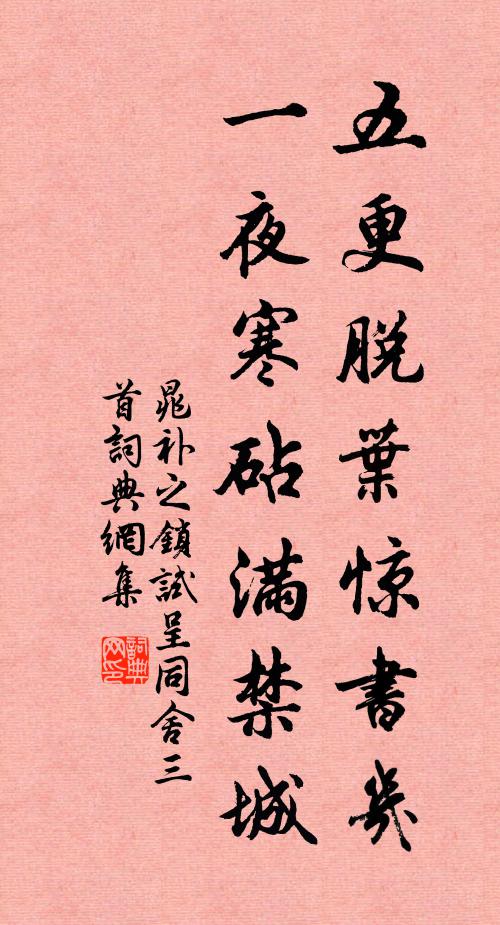 五更脫葉惊書幾
一夜寒砧滿禁城
晁补之鎖試呈同舍三
首詞典網集
詞典
网印